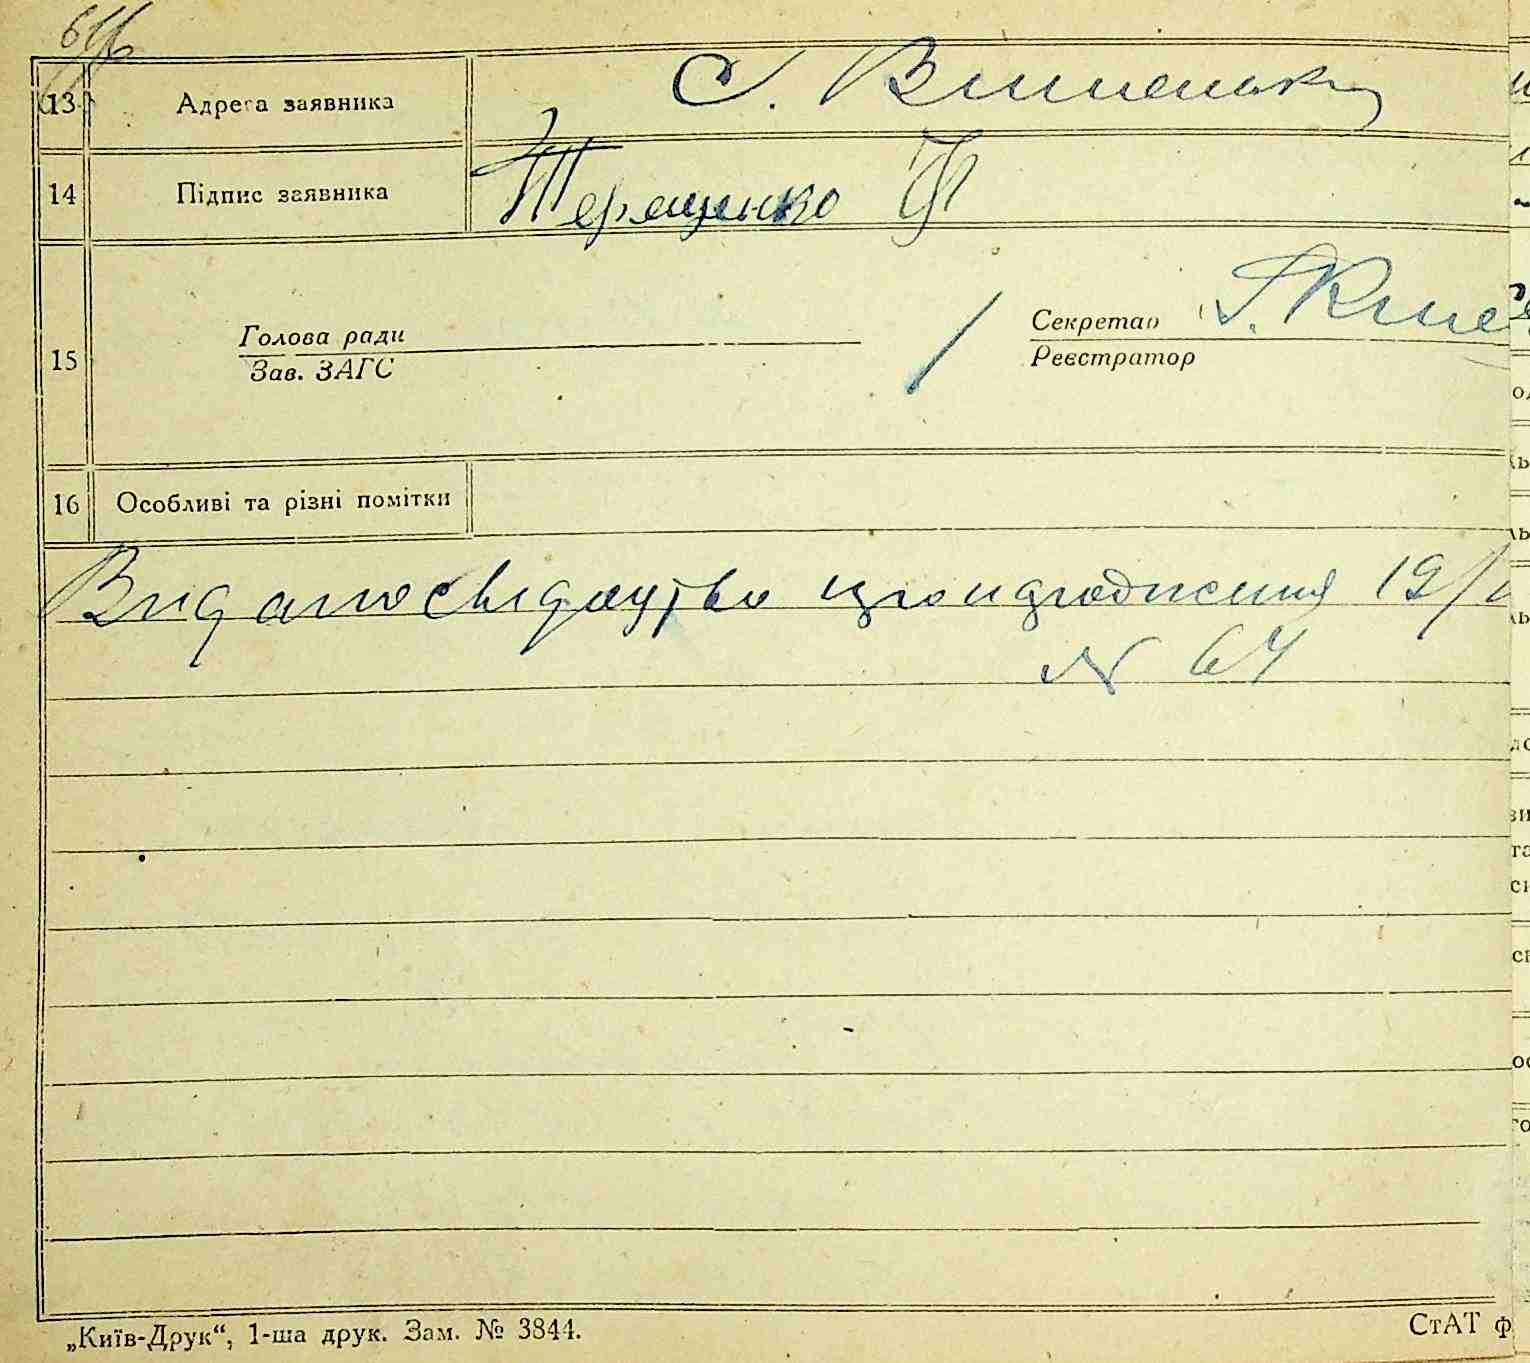 64
13 Адреса заявника С. Вишеньки
14 Підпис заявника Терещенко Ф
15 Голова ради
Зав. ЗАГС
Секретар
Реєстратор
16 Особливі та різні помітки
Видано свідоцтво 19/
№ 64
„Київ-Друк“, 1-ша друк. Зам. № 3844.
СтАТ ф